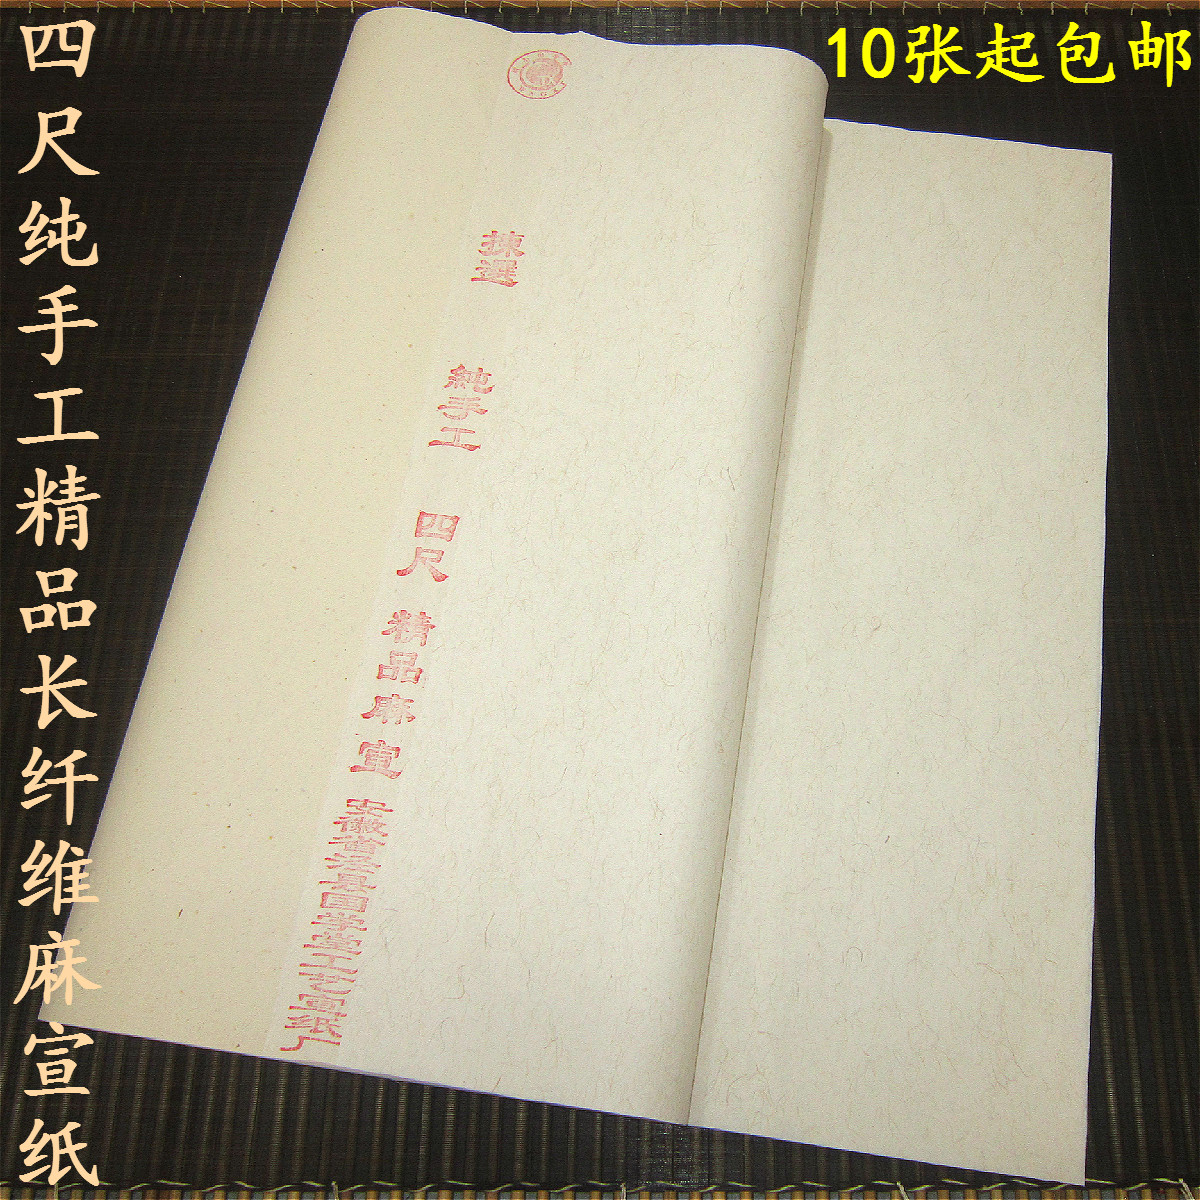 四尺纯手工精品长纤维麻宣纸
10张起包邮
揀選
純手工
四尺
精品麻宣
安徽省泾县国学堂工艺宣纸厂